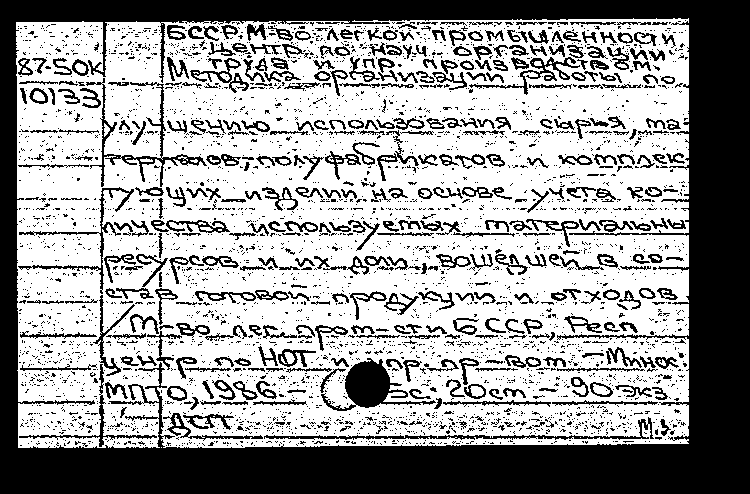 БССР. М-во легкой промышленности
Центр по науч. организации
труда и упр. производством
87-50к Методика организации работы по
10133
улучшению использования сырья, ма-
териалов, полуфабрикатов и комплек-
тующих изделий на основе учета ко-
личества используемых материальны
ресурсов и их доли, вошедшей в со-
став готовой продукции и отходов.
М-во лег. пром-сти БССР, Респ.
центр по НОТ и упр. пр-вом. - Минск:
МППО, 1986. - с.; 20 см. - 90 экз.
ДСП.
М.З.